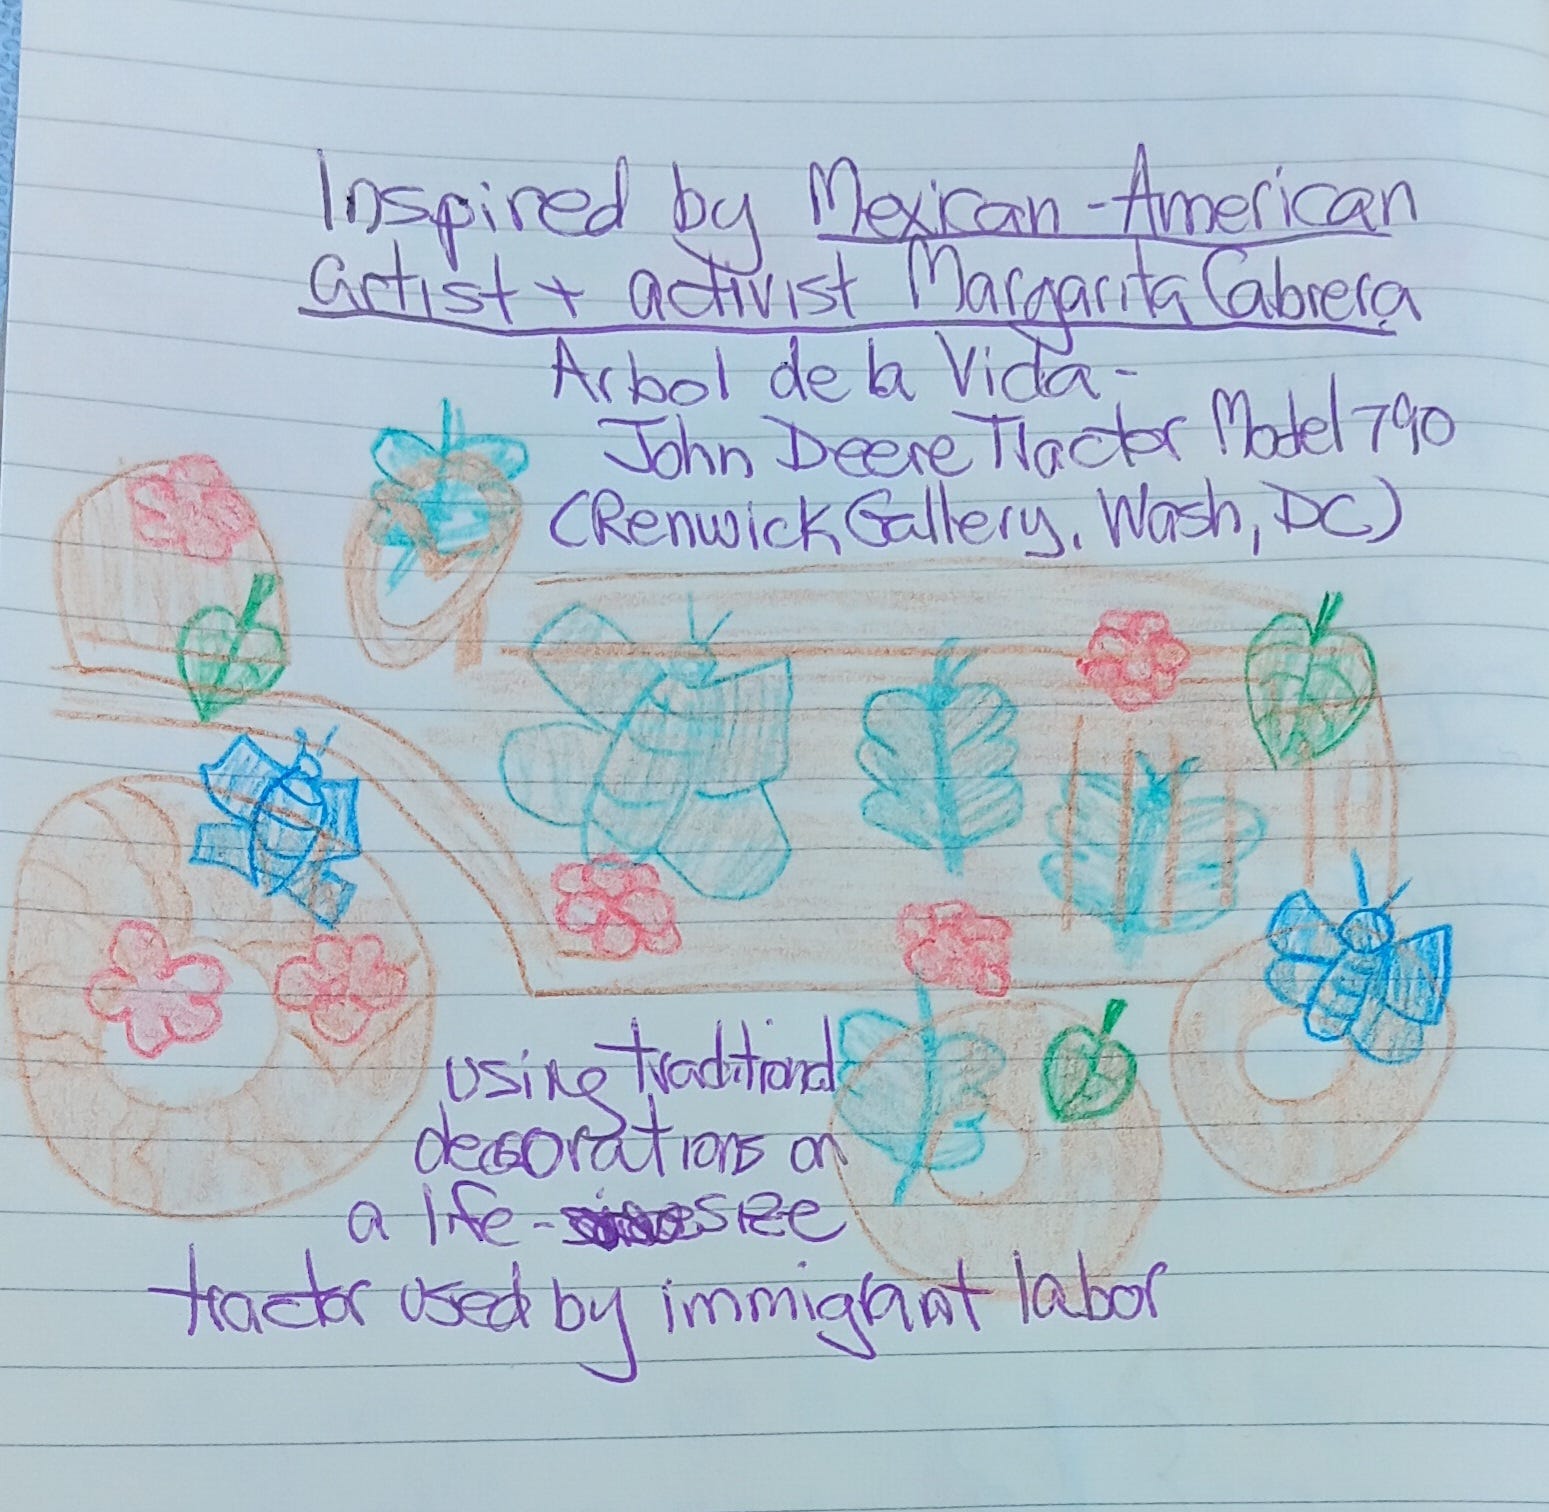 Inspired by Mexican-American
artist + activist Margarita Cabrera
Arbol de la Vida-
John Deere Tractor Model 790
(Renwick Gallery, Wash, DC)
using traditional
decorations on
a life-size
tractor used by immigrant labor